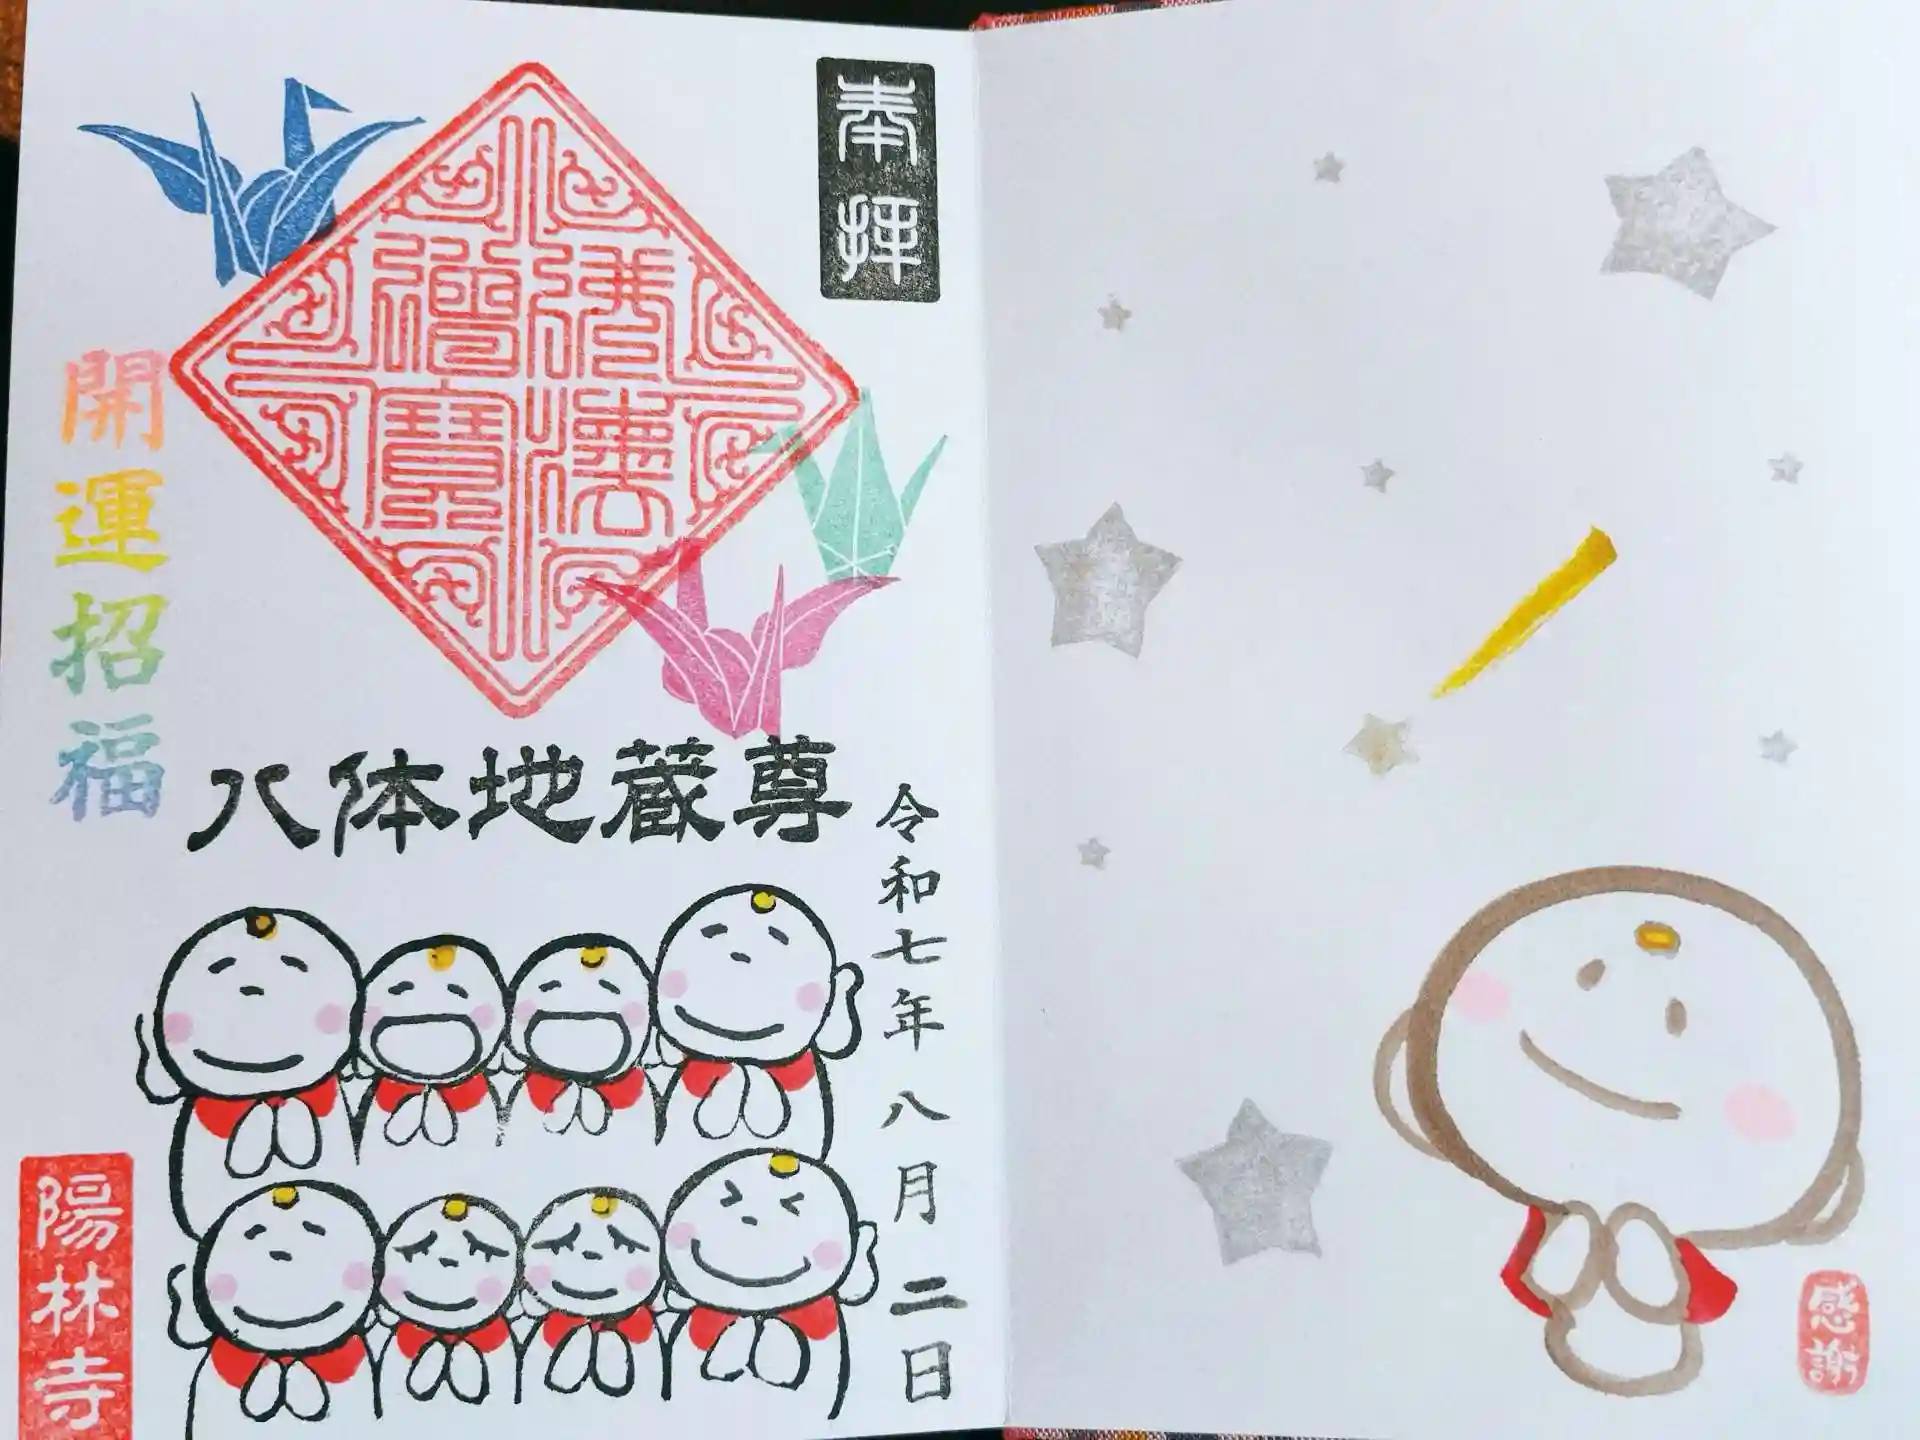 奉拝
佛法僧寳
開運招福
八体地蔵尊
令和七年八月二日
陽林寺
感謝